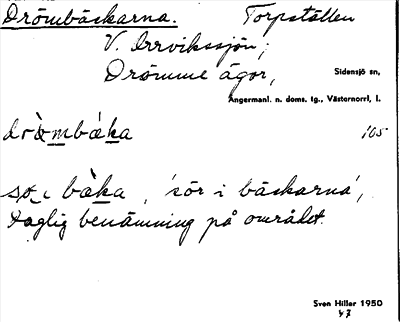 Drömbäskarna. Torpställen
V. Orrvikssjön;
Drömme ägor, Sidensjö sn,
Ångermanl. n. doms. tg., Västernorrl. l.
dròmbàka 105
sø i bàka, 'sör i bäskarna',
daglig benämning på området.
Sven Hiller 1950
47